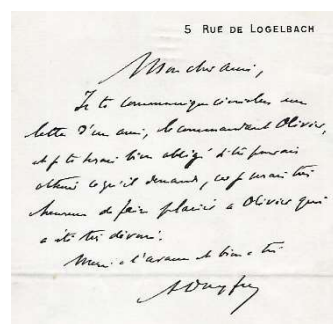 5 RUE DE LOGELBACH
Mon cher ami,
Je te communique ci-inclus une
lettre d'un ami, le commandant Olivier,
et je te serai bien obligé si tu pouvais
obtenir ce qu'il demande, car je serais très
heureux de faire plaisir à Olivier qui
a été très dévoué.
Merci à l'avance et bien à toi
A Dreyfus